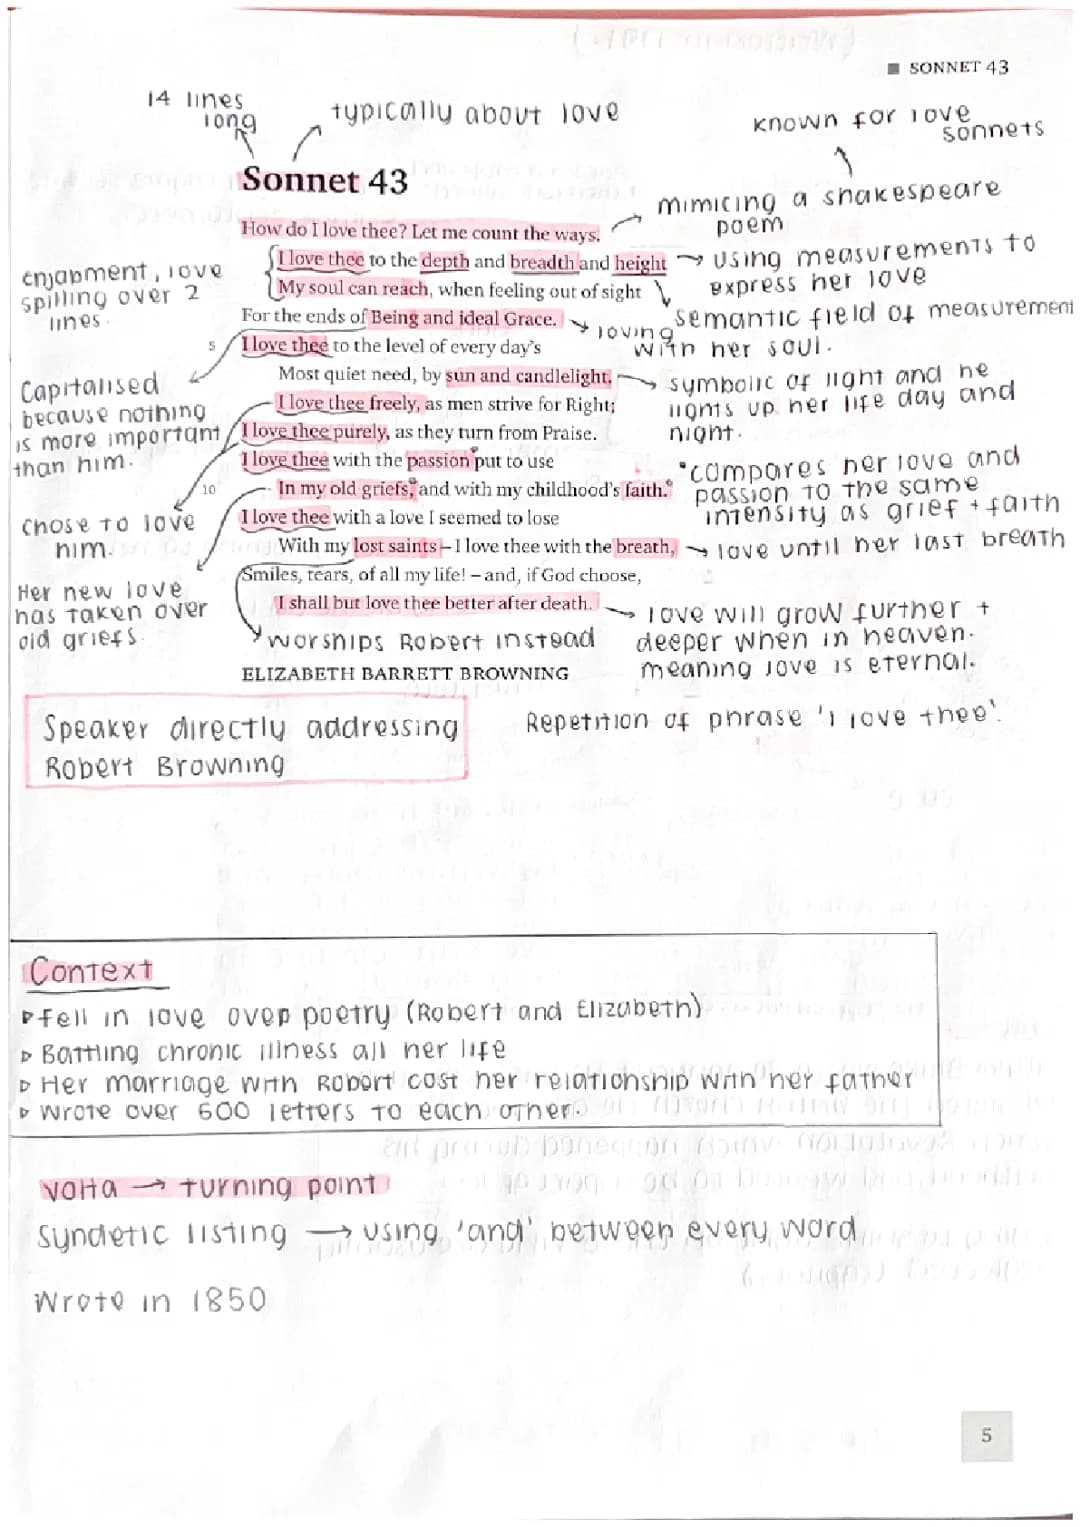 ■ SONNET 43
14 lines
long
typically about love
known for love
sonnets
Sonnet 43
mimicing a shakespeare
poem
How do I love thee? Let me count the ways.
I love thee to the depth and breadth and height
using measurements to
express her love
My soul can reach, when feeling out of sight
semantic field of measurement
For the ends of Being and ideal Grace.
loving
with her soul.
enjabment, love
spilling over 2
lines.
5
I love thee to the level of every day's
Most quiet need, by sun and candlelight.
symbolic of light and he
lights up her life day and
night.
Capitalised
because nothing
is more important
than him.
I love thee freely, as men strive for Right;
I love thee purely, as they turn from Praise.
I love thee with the passion* put to use
*compares her love and
passion to the same
intensity as grief + faith
10
In my old griefs,* and with my childhood's faith.*
chose to love
him.
I love thee with a love I seemed to lose
With my lost saints – I love thee with the breath,
love until her last breath
Smiles, tears, of all my life! – and, if God choose,
Her new love
has taken over
old griefs.
I shall but love thee better after death.
love will grow further +
deeper when in heaven.
meaning love is eternal.
worships Robert instead
ELIZABETH BARRETT BROWNING
Speaker directly addressing
Robert Browning
Repetition of phrase 'I love thee'.
Context
▹ fell in love over poetry (Robert and Elizabeth)
▹ Battling chronic illness all her life
▹ Her marriage with Robert cost her relationship with her father
▹ wrote over 500 letters to each other.
volta → turning point
Syndetic listing → using 'and' between every word
Wrote in 1850
5